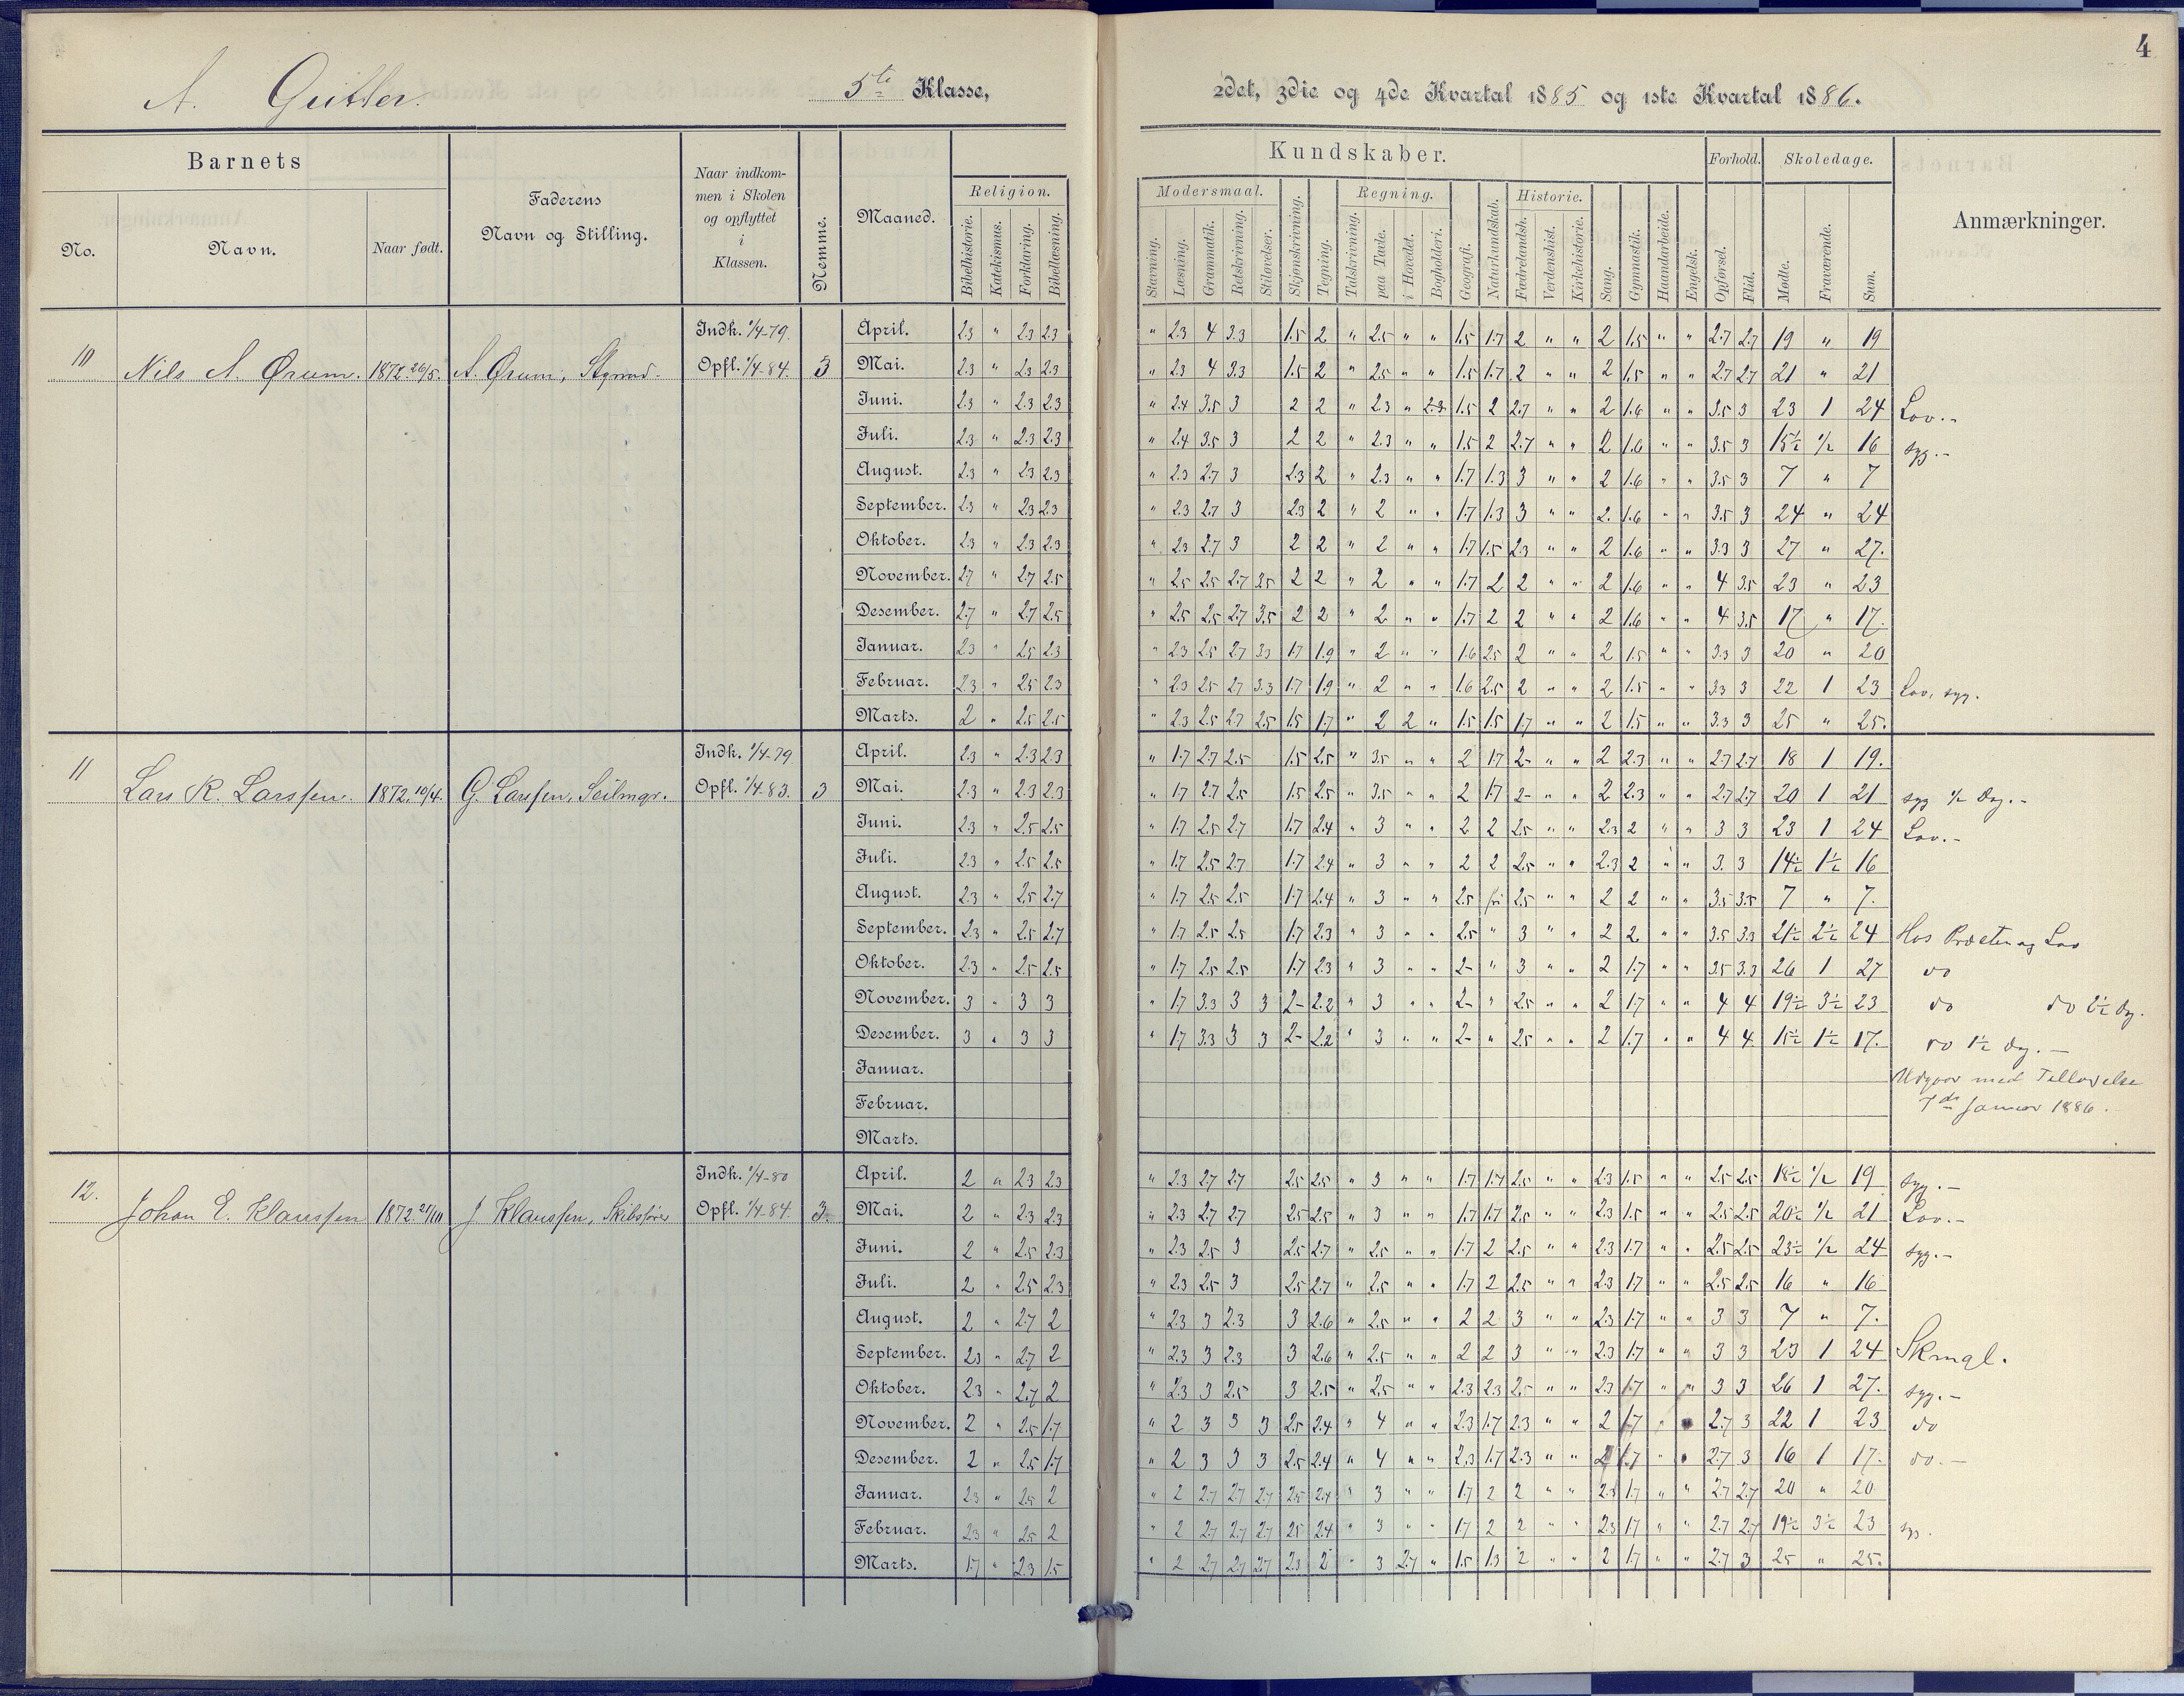 4
A. Gutter. 5te Klasse, 2det, 3die og 4de Kvartal 1885 og 1ste Kvartal 1886.
Barnets
Faderens Navn og Stilling.
Naar indkommen i Skolen og opflyttet i Klassen.
Nemme.
Maaned.
Kundskaber.
Forhold.
Skoledage.
Anmærkninger.
No.
Navn.
Naar født.
Religion.
Bibelhistorie.
Katekismus.
Forklaring.
Bibellæsning.
Modersmaal.
Stavning.
Læsning.
Grammatik.
Retskrivning.
Stiløvelser.
Skjønskrivning.
Tegning.
Regning.
Talskrivning.
paa Tavle.
i Hovedet.
Bogholderi.
Geografi.
Naturkundskab.
Historie.
Fædrelandsh.
Verdenshist.
Kirkehistorie.
Sang.
Gymnastik.
Haandarbeide.
Engelsk.
Opførsel.
Flid.
Mødte.
Fraværende.
Sum.
10 Nils A. Ørum. 1872 26/5. A. Ørum, Styrmd. Indk. 1/4-79. Opfl. 1/4-84. 3
April. 2.3 " 2.3 2.3 " 2.3 4 3.3 1.5 2 " 2.5 " " 1.5 1.7 2 " " 2 1.5 " " 2.7 2.7 19 " 19
Mai. 2.3 " 2.3 2.3 " 2.3 4 3.3 1.5 2 " 2.5 " " 1.5 1.7 2 " " 2 1.5 " " 2.7 2.7 21 " 21
Juni. 2.3 " 2.3 2.3 " 2.4 3.5 3 2 2 " 2.3 " 2.3 1.5 2 2.7 " " 2 1.6 " " 3.5 3 23 1 24 Lov.-
Juli. 2.3 " 2.3 2.3 " 2.4 3.5 3 2 2 " 2.3 " " 1.5 2 2.7 " " 2 1.6 " " 3.5 3 15½ ½ 16 syg.-
August. 2.3 " 2.3 2.3 " 2.3 2.7 3 2.3 2 " 2.3 " " 1.7 1.3 3 " " 2 1.6 " " 3.5 3 7 " 7
September. 2.3 " 2.3 2.3 " 2.3 2.7 3 2.3 2 " 2 " " 1.7 1.3 3 " " 2. 1.6 " " 3.5 3 24 " 24
Oktober. 2.3 " 2.3 2.3 " 2.3 2.7 3 2 2 " 2 " " 1.7 1.5 2.3 " " 2 1.6 " " 3.3 3 27 " 27.
November. 2.7 " 2.7 2.5 " 2.5 2.5 2.7 3.5 2 2 " 2 " " 1.7 2 2 " " 2 1.6 " " 4 3.5 23 " 23
Desember. 2.7 " 2.7 2.5 " 2.5 2.5 2.7 3.5 2 2 " 2 " " 1.7 2 2 " " 2 1.6 " " 4 3.5 17 " 17.
Januar. 2.3 " 2.5 2.3 " 2.3 2.5 2.7 3.3 1.7 1.9 " 2 " " 1.6 2.5 2 " " 2 1.5 " " 3.3 3 20 " 20
Februar. 2.3 " 2.5 2.3 " 2.3 2.5 2.7 3.3 1.7 1.9 " 2 " " 1.6 2.5 2 " " 2 1.5 " " 3.3 3 22 1 23 Lov, syg.
Marts. 2 " 2.5 2.5 " 2.3 2.5 2.7 2.5 1.5 1.7 " 2 2 " 1.5 1.5 1.7 " " 2 1.5 " " 3.3 3 25 " 25.
11 Lars R. Larssen. 1872. 10/4. G. Larssen, Seilmgr. Indk. 1/4-79 Opfl. 1/4.83. 3
April. 2.3 " 2.3 2.3 " 1.7 2.7 2.5 1.5 2.5 " 3.5 " " 2 1.7 2- " " 2 2.3 " " 2.7 2.7 18 1 19.
Mai. 2.3 " 2.3 2.3 " 1.7 2.7 2.5 1.5 2.5 " 3.5 " " 2 1.7 2- " " 2 2.3 " " 2.7 2.7 20 1 21 syg ½ Dag.-
Juni. 2.3 " 2.5 2.5 " 1.7 2.5 2.7 1.7 2.4 " 3 " " 2 2 2.5 " " 2.3 2 " " 3 3 23 1 24 Lov.-
Juli. 2.3 " 2.5 2.5 " 1.7 2.5 2.7 1.7 2.4 " 3 " " 2 2 2.5 " " 2.3 2 " " 3. 3 14½ 1½ 16
August. 2.3 " 2.5 2.7 " 1.7 2.5 2.5 1.7 2.4 " 3 " " 2.5 fri 2.5 " " 2 2 " " 3.5 3.5 7 " 7.
September. 2.3 " 2.5 2.7 " 1.7 2.5 2.5 1.7 2.3 " 3 " " 2.5 " 3 " " 2 2 " " 3.5 3.3 21½ 2½ 24 Hos Præsten og Lov
Oktober. 2.3 " 2.5 2.5 " 1.7 2.5 2.5 1.7 2.3 " 3 " " 2- " 3 " " 2 1.7 " " 3.5 3.3 26 1 27 do
November. 3 " 3 3 " 1.7 3.3 3 3 2- 2.2 " 3 " " 2- " 2.5 " " 2 1.7 " " 4 4 19½ 3½ 23 do do 2½ Dg.
Desember. 3 " 3 3 " 1.7 3.3 3 3 2- 2.2 " 3 " " 2- " 2.5 " " 2 1.7 " " 4 4 15½ 1½ 17. do 1½ dg.-
Januar. Udgaar med Tilladelse
Februar. 7de Januar 1886.
Marts.
12. Johan E. Klaussen 1872. 21/10 J. Klaussen, Skibsfører Indk. 1/4-80 Opfl. 1/4-84. 3.
April. 2 " 2.3 2.3 " 2.3 2.7 2.7 2.5 2.5 " 3 " " 1.7 1.7 2.5 " " 2.3 1.5 " " 2.5 2.5 18½ ½ 19 syg.-
Mai. 2 " 2.3 2.3 " 2.3 2.7 2.7 2.5 2.5 " 3 " " 1.7 1.7 2.5 " " 2.3 1.5 " " 2.5 2.5 20½ ½ 21 Lov.-
Juni. 2 " 2.5 2.3 " 2.3 2.5 3 2.5 2.7 " 2.5 " " 1.7 2 2.5 " " 2.3 1.7 " " 2.5 2.5 23½ ½ 24 syg.-
Juli. 2 " 2.5 2.3 " 2.3 2.5 3 2.5 2.7 " 2.5 " " 1.7 2 2.5 " " 2.3 1.7 " " 2.5 2.5 16 " 16
August. 2 " 2.7 2 " 2.3 3 2.3 3 2.6 " 2.5 " " 2 2 3 " " 2.3 1.7 " " 3 3 7 " 7.
September. 2.3 " 2.7 2 " 2.3 3 2.3 3 2.6 " 2.5 " " 2 2 3 " " 2.3 1.7 " " 3 3 23 1 24 Skmgl.
Oktober. 2.3 " 2.7 2 " 2.3 3 2.5 3 2.5 " 2.5 " " 2.3 2.3 2.5 " " 2.3 1.7 " " 3 3 26 1 27. syg.-
November. 2 " 2.5 1.7 " 2 3 3 3 2.5 2.4 " 4 " " 2.3 1.7 2.3 " " 2 1.7 " " 2.7 3 22 1 23 do
Desember. 2 " 2.5 1.7 " 2 3 3 3 2.5 2.4 " 4 " " 2.3 1.7 2.3 " " 2 1.7 " " 2.7 3 16 1 17. do.-
Januar. 2.3 " 2.5 2 " 2 2.7 2.7 2.7 2.5 2.4 " 3 " " 1.7 2 2 " " 2.3 1.7 " " 2.7 2.7 20 " 20
Februar. 2.3 " 2.5 2 " 2 2.7 2.7 2.7 2.5 2.4 " 3 " " 1.7 2 2 " " 2.3 1.7 " " 2.7 2.7 19½ 3½ 23 syg.
Marts. 1.7 " 2.3 1.5 " 2 2.7 2.7 2.7 2.3 2 " 3 2.7 " 1.5 1.3 2 " " 2 1.7 " " 2.7 3 25 " 25.